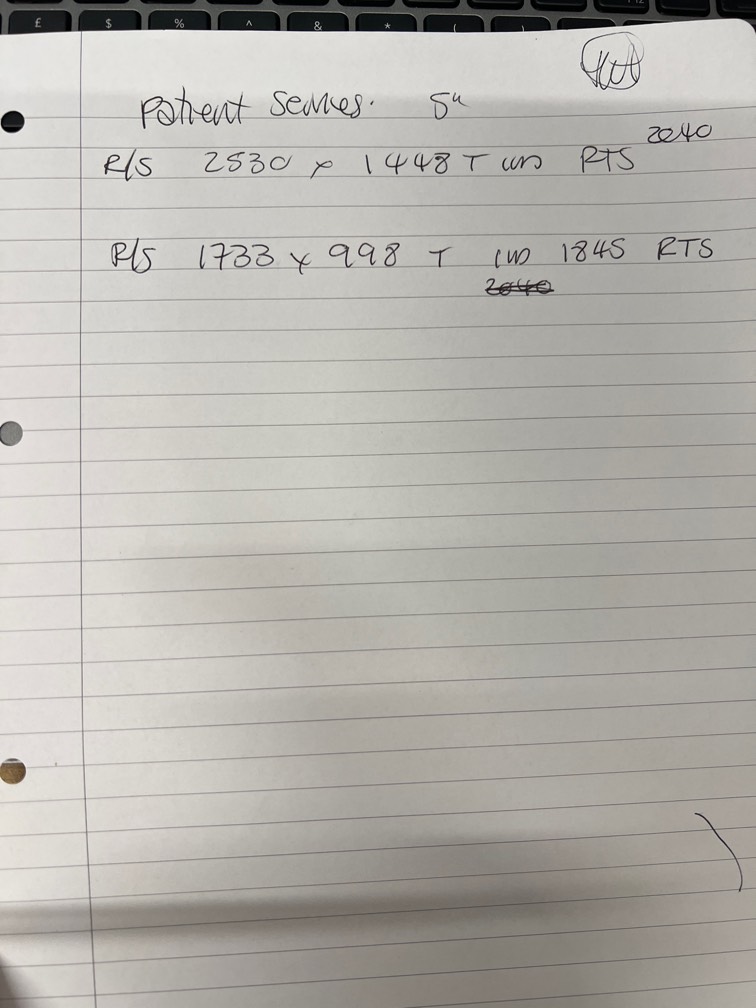 £ $ % ^ & * ( )
Patient Services. 5"
2040
R/S 2530 x 1448 T RTS
R/S 1733 x 998 T 1845 RTS
2040